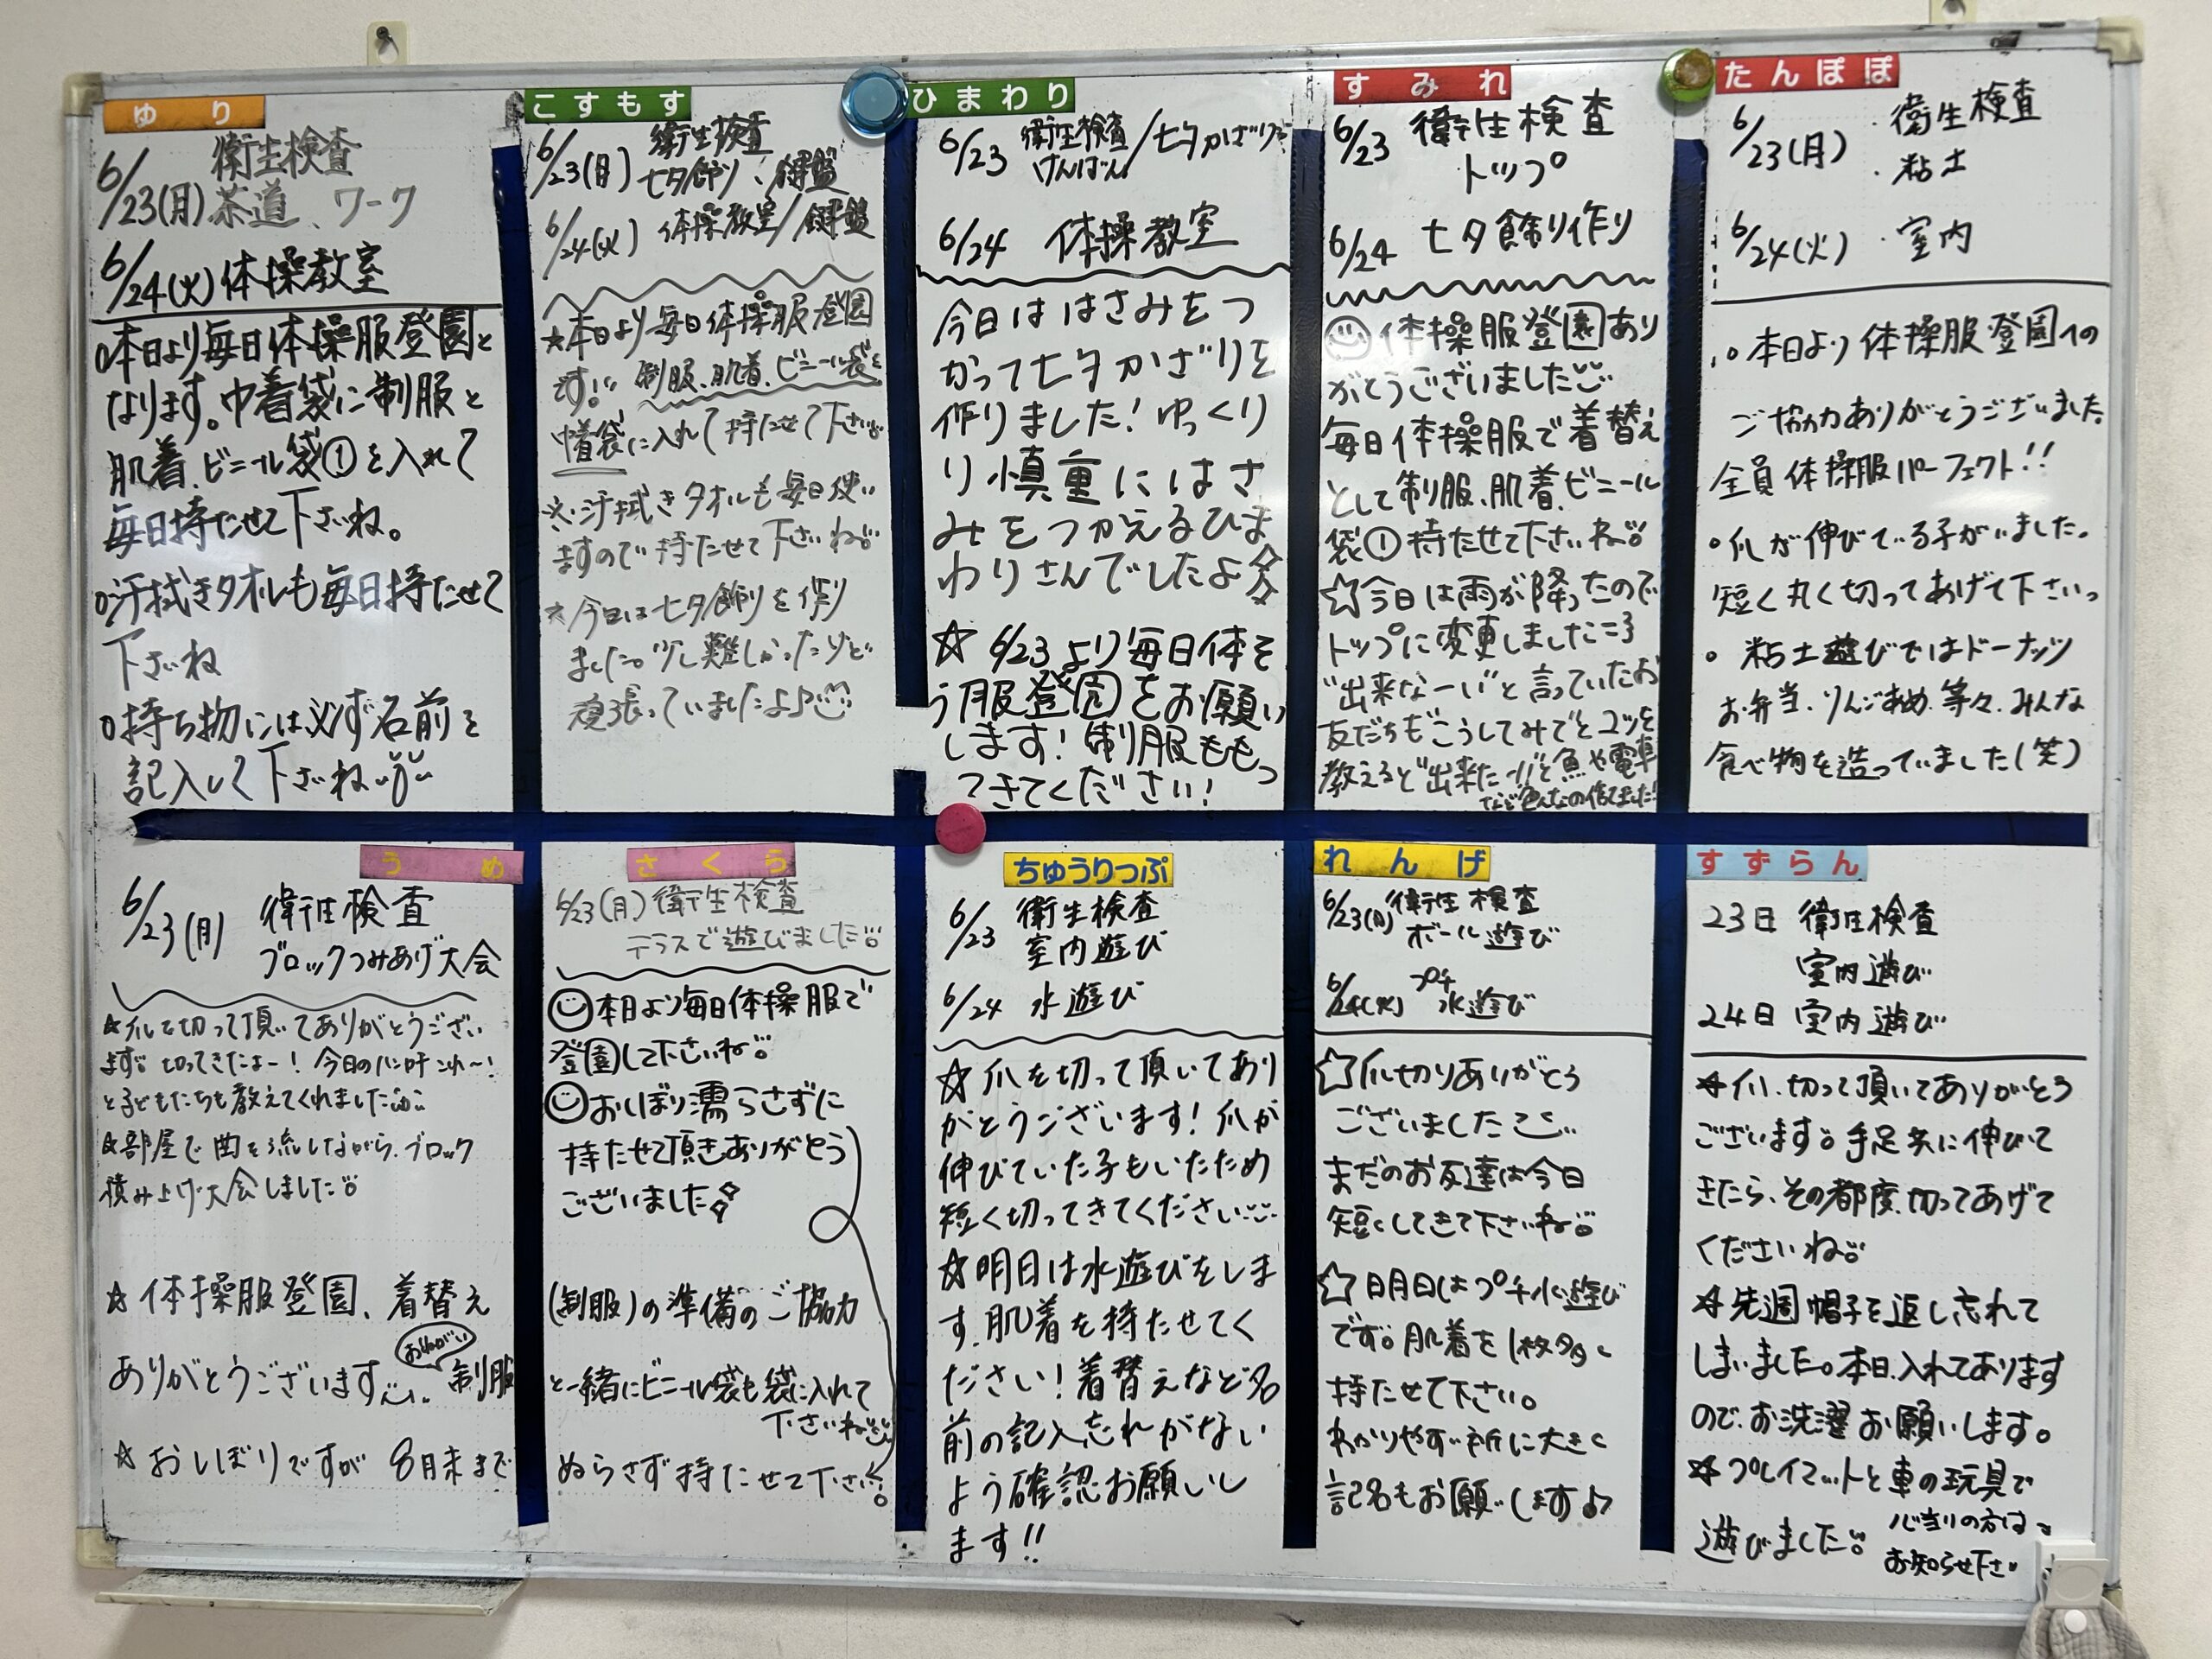 ゆり
衛生検査
6/23(月)茶道、ワーク
6/24(火)体操教室
○本日より毎日体操服登園と
なります。巾着袋に制服と
肌着、ビニール袋①を入れて
毎日持たせて下さいね。
○汗拭きタオルも毎日持たせて
下さいね
○持ち物には必ず名前を
記入して下さいね
こすもす
衛生検査
6/23(月)七夕飾り、鍵盤
6/24(火)体操教室/鍵盤
★本日より毎日体操服登園
です!! 制服、肌着、ビニール袋を
巾着袋に入れて持たせて下さい。
※汗拭きタオルも毎日使い
ますので持たせて下さいね。
*今日は七夕飾りを作り
ました。少し難しかったけど
頑張っていましたよ♪
ひまわり
6/23 衛生検査/七夕かざり
けんばん
6/24 体操教室
今日ははさみをつ
かって七夕かざりを
作りました!ゆっくり
り慎重にはさ
みをつかえるひま
わりさんでしたよ
☆6/23より毎日体そ
う服登園をお願い
します!制服ももっ
てきてください!
すみれ
6/23 衛生検査
トップ
6/24 七夕飾り作り
体操服登園あり
がとうございました
毎日体操服で着替え
として制服、肌着、ビニール
袋①持たせて下さいね。
☆今日は雨が降ったので
トップに変更しました
"出来なーい"と言っていたお
友だちも"こうしてみて"とコツを
教えると"出来たー!!"と魚や電車
など色んなの作てました!
たんぽぽ
6/23(月)・衛生検査
・粘土
6/24(火)・室内
○本日より体操服登園への
ご協力ありがとうございました。
全員体操服パーフェクト!!
○爪が伸びている子がいました。
短く丸く切ってあげて下さいっ
○粘土遊びではドーナッツ
お弁当、りんごあめ、等々、みんな
食べ物を造っていました(笑)
うめ
6/23(月) 衛生検査
ブロックつみあげ大会
☆爪を切って頂いてありがとうござい
ます。切ってきたよー!今日のハンカチこれ〜!
と子どもたちも教えてくれました
☆部屋で曲を流しながら、ブロック
積み上げ大会しました。
☆体操服登園、着替え
おねがい
ありがとうございます 制服
☆おしぼりですが 8月末まで
さくら
6/23(月)衛生検査
テラスで遊びました。
本日より毎日体操服で
登園して下さいね。
おしぼり濡らさずに
持たせて頂きありがとう
ございました
(制服)の準備のご協力
と一緒にビニール袋も袋に入れて
下さいね
ぬらさず持たせて下さい。
ちゅうりっぷ
6/23 衛生検査
室内遊び
6/24 水遊び
☆爪を切って頂いてあり
がとうございます!爪が
伸びていた子もいたため
短く切ってきてください
☆明日は水遊びをしま
す。肌着を持たせてく
ださい!着替えなど名
前の記入忘れがない
よう確認お願いし
ます!!
れんげ
6/23(月)衛生検査
ボール遊び
プチ
6/24(火) 水遊び
☆爪切りありがとう
ございました
まだのお友達は今日
短くしてきて下さいね。
☆明日はプチ水遊び
です。肌着を1枚多く
持たせて下さい。
わかりやすい所に大きく
記名もお願いします♪
すずらん
23日 衛生検査
室内遊び
24日 室内遊び
☆爪、切って頂いてありがとう
ございます。手足共に伸びて
きたら、その都度、切ってあげて
くださいね。
☆先週帽子を返し忘れて
しまいました。本日、入れてあります
ので、お洗濯お願いします。
☆プレイマットと車の玩具で
遊びました。 心当りの方は
お知らせ下さい